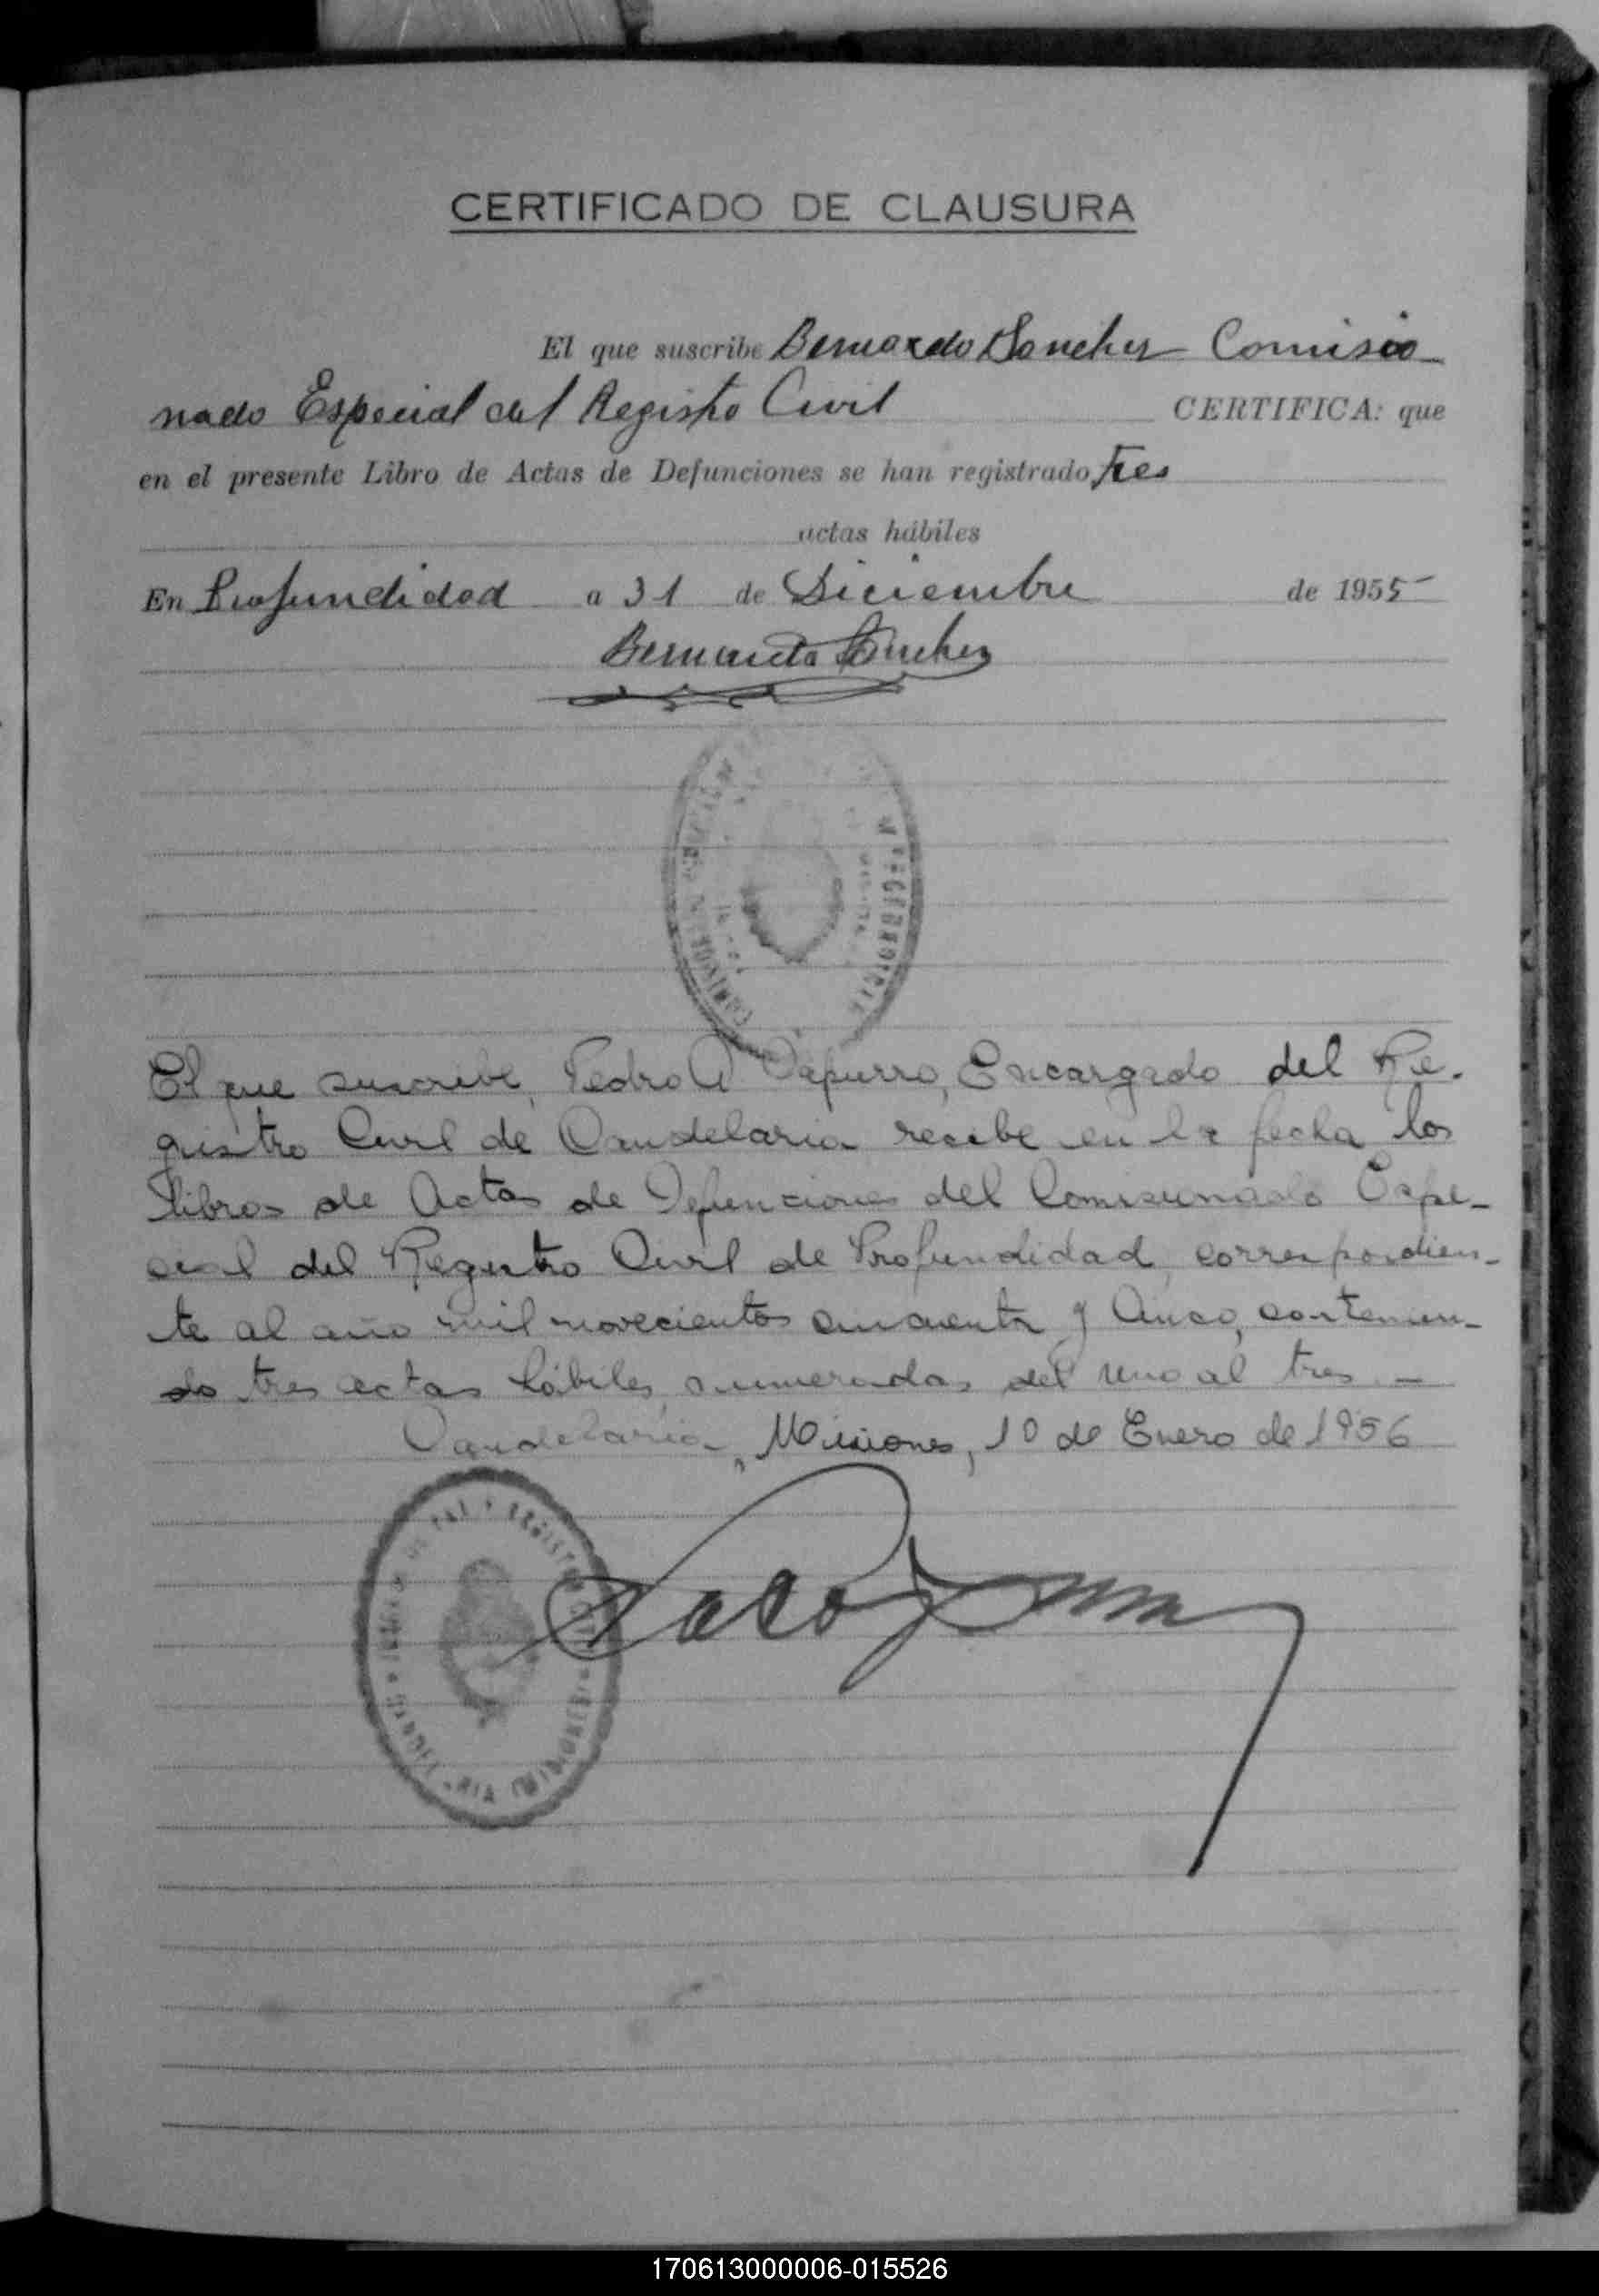 CERTIFICADO DE CLAUSURA
El que suscribe Bernardo Sanchez Comisio
nado Especial del Registro Civil CERTIFICA: que
en el presente Libro de Actas de Defunciones se han registrado tres
actas hábiles
En Profundidad a 31 de Diciembre de 1955
Bernardo Sanchez
El que suscribe, Pedro A Dapurro, Encargado del Re-
gistro Civil de Candelaria recibe en la fecha los
libros de Actas de Defunciones del Comisionado Espe-
cial del Registro Civil de Profundidad, correspondien-
te al año mil novecientos cincuenta y Cinco, contenien-
do tres actas hábiles, numeradas del uno al tres.-
Candelaria, Misiones, 10 de Enero de 1956
170613000006-015526